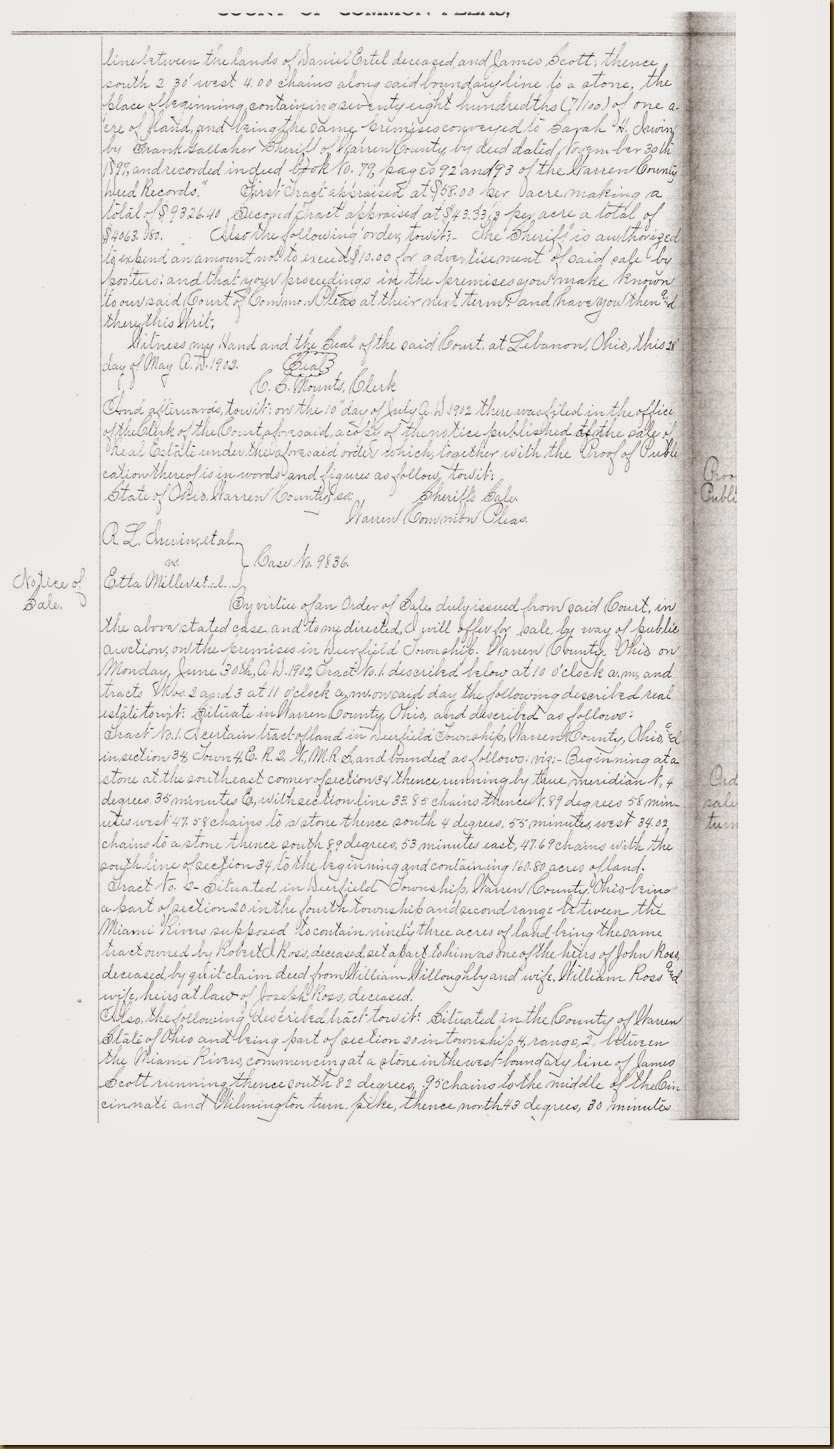 COURT OF COMMON PLEAS,
line between the lands of Daniel Ertel deceased and James Scott; thence
south 2 30' west 4.00 chains along said boundary line to a stone, the
place of beginning, containing seventy eight hundredths (7/100) of one a-
cre of land, and being the same premises conveyed to Sarah H. Irwin
by Frank Gallaher Sheriff of Warren County by deed dated, November 30th
1897, and recorded in deed book No. 79, pages 92 and 93 of the Warren County
Deed Records." First Tract appraised at $58.00 per acre making a
total of $9326.40, Second Tract appraised at $43.33 1/3 per acre a total of
$4063.80. Also the following order, towit:- The Sheriff is authorized
to expend an amount not to exceed $10.00 for advertisement of said sale by
posters: and that your proceedings in the premises you make known
to our said Court of Common Pleas at their next term and have you then and
there this Writ.
Witness my Hand and the Seal of the said Court, at Lebanon, Ohio, this 28"
day of May A.D. 1902. Seal
C. S. Mounts, Clerk
And afterwards, towit: on the 10" day of July A.D. 1902 there was filed in the office
of the Clerk of the Court aforesaid, a copy of the notice published of the sale of
Real Estate under the aforesaid order which, together with the Proof of Publi
cation thereof is in words and figures as follow, towit:
State of Ohio, Warren County, ss: Sheriff's Sale
Warren Common Pleas.
R. L. Irwin, et al.
vs. Case No. 9836.
Etta Miller et al.
Notice of
Sale.
By virtue of an Order of Sale, duly issued from said Court, in
the above stated case, and to me directed, I will offer for sale, by way of public
auction, on the premises in Deerfield Township, Warren County, Ohio on
Monday, June 30th, A.D. 1902, Tract No. 1. described below at 10 o'clock a.m., and
tracts Nos. 2 and 3 at 11 o'clock a.m. on said day the following described real
estate towit: Situate in Warren County, Ohio, and described as follows:
Tract No. 1. A certain tract of land in Deerfield Township, Warren County, Ohio, and
in section 34 Town 4, E. R. 2, N, M.R.S. and bounded as follows: viz:- Beginning at a
stone at the southeast corner of section 34 thence running by true meridian N, 4
degrees. 35 minutes E, with section line 33.85 chains thence N. 89 degrees 58 min-
utes west 47.58 chains to a stone thence south 4 degrees, 55 minutes, west 34.02
chains to a stone thence south 89 degrees, 53 minutes east, 47.69 chains with the
south line of section 34, to the beginning and containing 160.80 acres of land.
Tract No. 2- Situated in Deerfield Township, Warren County, Ohio being
a part of section 20 in the fourth township and second range between the
Miami Rivers supposed to contain ninety three acres of land being the same
tract owned by Robert J Ross, deceased, set apart to him as one of the heirs of John Ross,
deceased, by quit claim deed from William Willoughby and wife, William Ross and
wife, heirs at law of Joseph Ross, deceased.
Also, the following described tract towit: Situated in the County of Warren
State of Ohio and being part of section 20 in township 4, range, 2, between
the Miami Rivers, commencing at a stone in the west boundary line of James
Scott running thence south 82 degrees, .95 chains to the middle of the Cin
cinnati and Wilmington turn-pike, thence north 43 degrees, 30 minutes
Proo
Publi
Ord
sale
turn